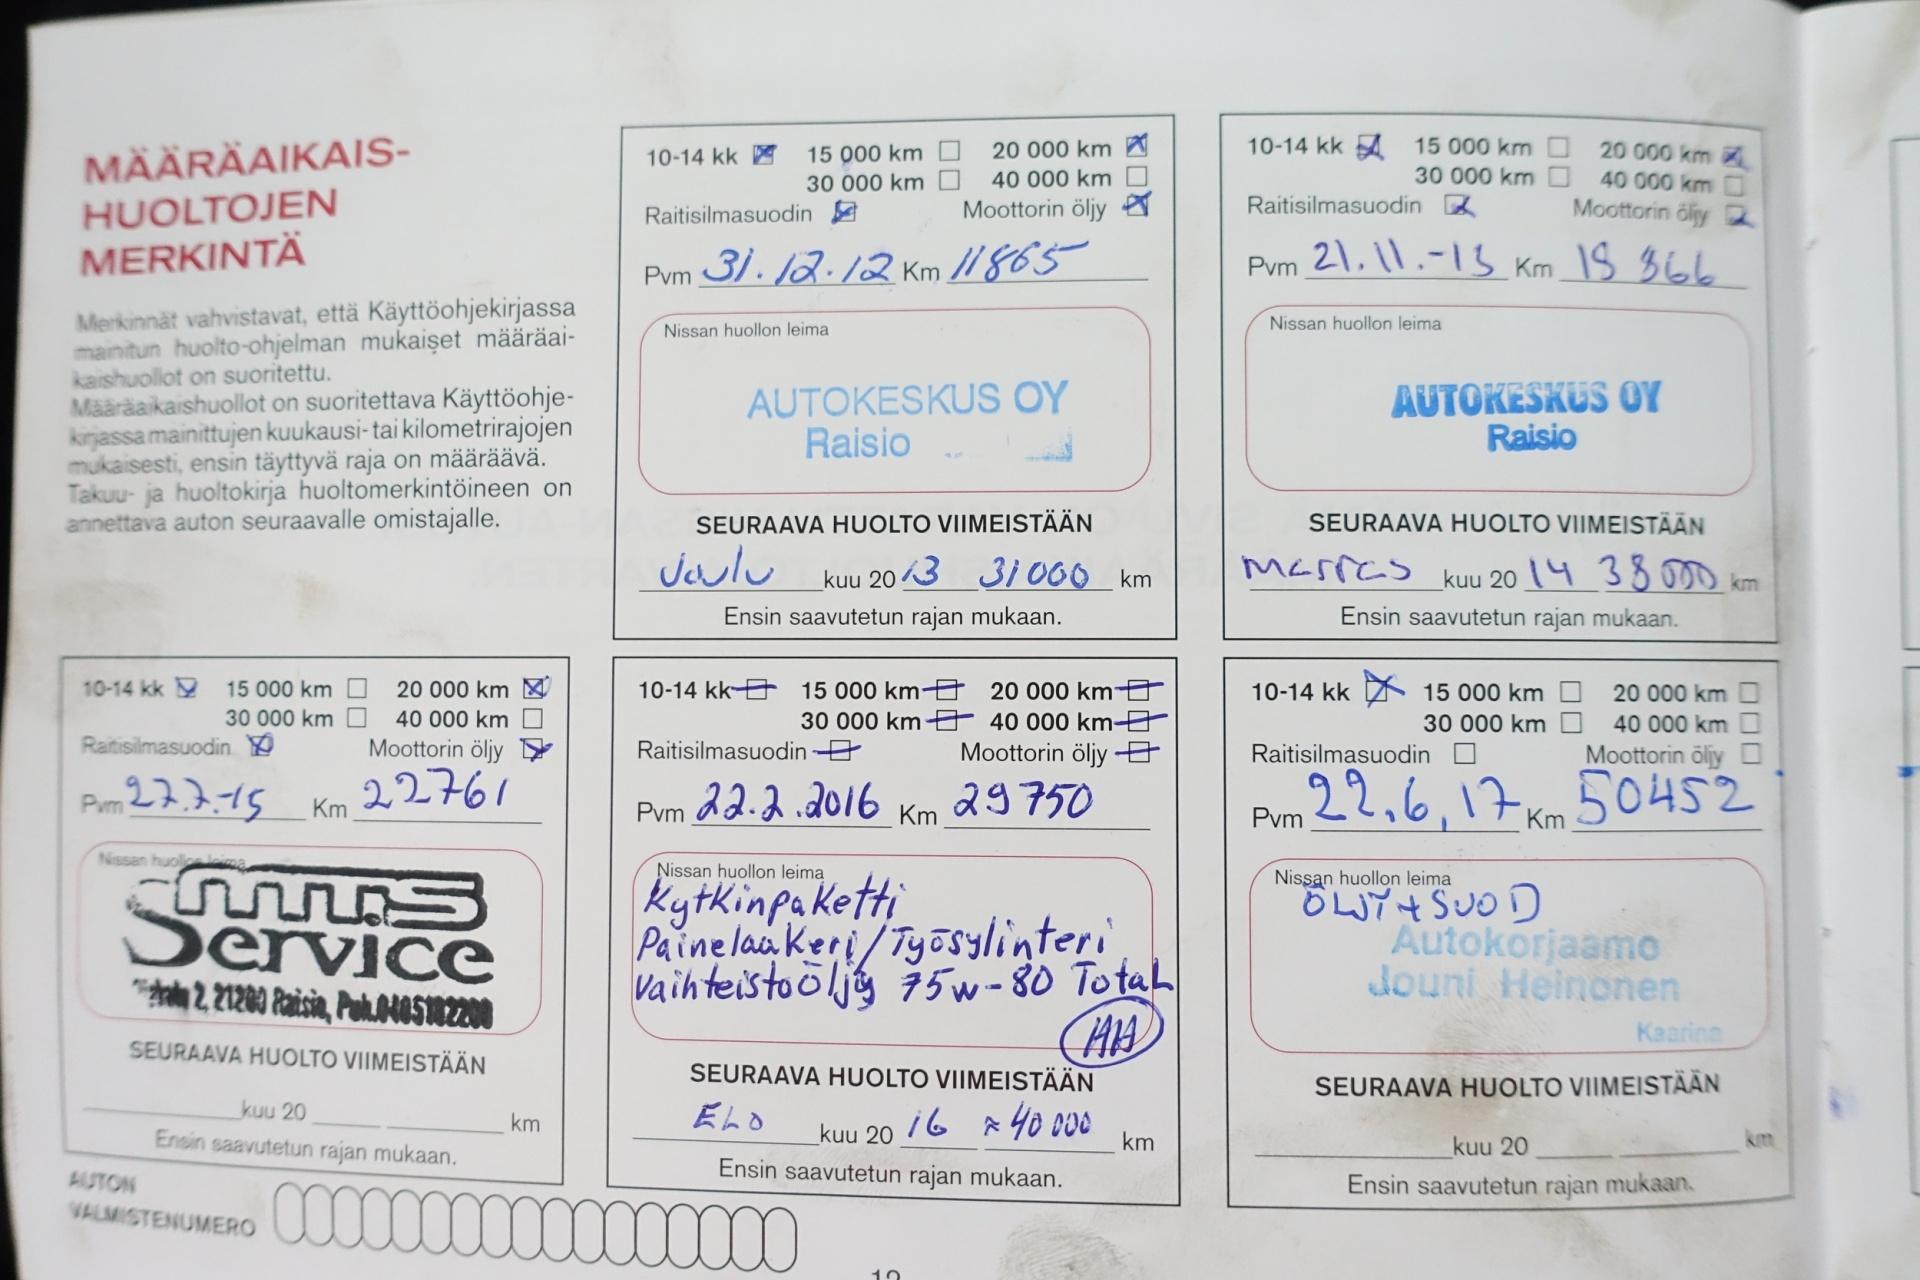 MÄÄRÄAIKAIS-
HUOLTOJEN
MERKINTÄ
Merkinnät vahvistavat, että Käyttöohjekirjassa
mainitun huolto-ohjelman mukaiset määräai-
kaishuollot on suoritettu.
Määräaikaishuollot on suoritettava Käyttöohje-
kirjassa mainittujen kuukausi- tai kilometrirajojen
mukaisesti, ensin täyttyvä raja on määräävä.
Takuu- ja huoltokirja huoltomerkintöineen on
annettava auton seuraavalle omistajalle.
10-14 kk 15 000 km 20 000 km
30 000 km 40 000 km
Raitisilmasuodin Moottorin öljy
Pvm 31.12.12 Km 11865
Nissan huollon leima
AUTOKESKUS OY
Raisio
SEURAAVA HUOLTO VIIMEISTÄÄN
Joulu kuu 20 13 31000 km
Ensin saavutetun rajan mukaan.
10-14 kk 15 000 km 20 000 km
30 000 km 40 000 km
Raitisilmasuodin Moottorin öljy
Pvm 21.11.-13 Km
Nissan huollon leima
AUTOKESKUS OY
Raisio
SEURAAVA HUOLTO VIIMEISTÄÄN
marras kuu 20 14 38000 km
Ensin saavutetun rajan mukaan.
10-14 kk 15 000 km 20 000 km
30 000 km 40 000 km
Raitisilmasuodin Moottorin öljy
Pvm 27.7.-15 Km 22761
Nissan huollon leima
Service
2, 21200 Raisio, Puh.
SEURAAVA HUOLTO VIIMEISTÄÄN
kuu 20 km
Ensin saavutetun rajan mukaan.
10-14 kk 15 000 km 20 000 km
30 000 km 40 000 km
Raitisilmasuodin Moottorin öljy
Pvm 22.2.2016 Km 29750
Nissan huollon leima
Kytkinpaketti
Painelaakeri/Työsylinteri
Vaihteistoöljy 75w-80 Total
SEURAAVA HUOLTO VIIMEISTÄÄN
ELO kuu 20 16 ≈40000 km
Ensin saavutetun rajan mukaan.
10-14 kk 15 000 km 20 000 km
30 000 km 40 000 km
Raitisilmasuodin Moottorin öljy
Pvm 22.6.17 Km 50452
Nissan huollon leima
ÖLJYT + SUOD
Autokorjaamo
Jouni Heinonen
Kaarina
SEURAAVA HUOLTO VIIMEISTÄÄN
kuu 20 km
Ensin saavutetun rajan mukaan.
AUTON
VALMISTENUMERO